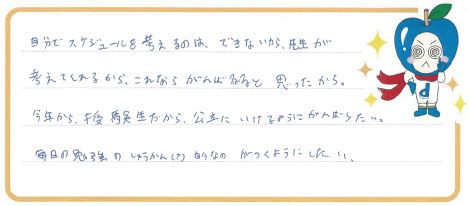 自分でスケジュールを考えるのは、できないから、先生が
考えてくれるから、これならがんばれるなと思ったから。
今年から、受験生だから、公立にいけるようにがんばりたい。
毎日の勉強のしゅうかん(?)的なのがつくようにしたい。
d